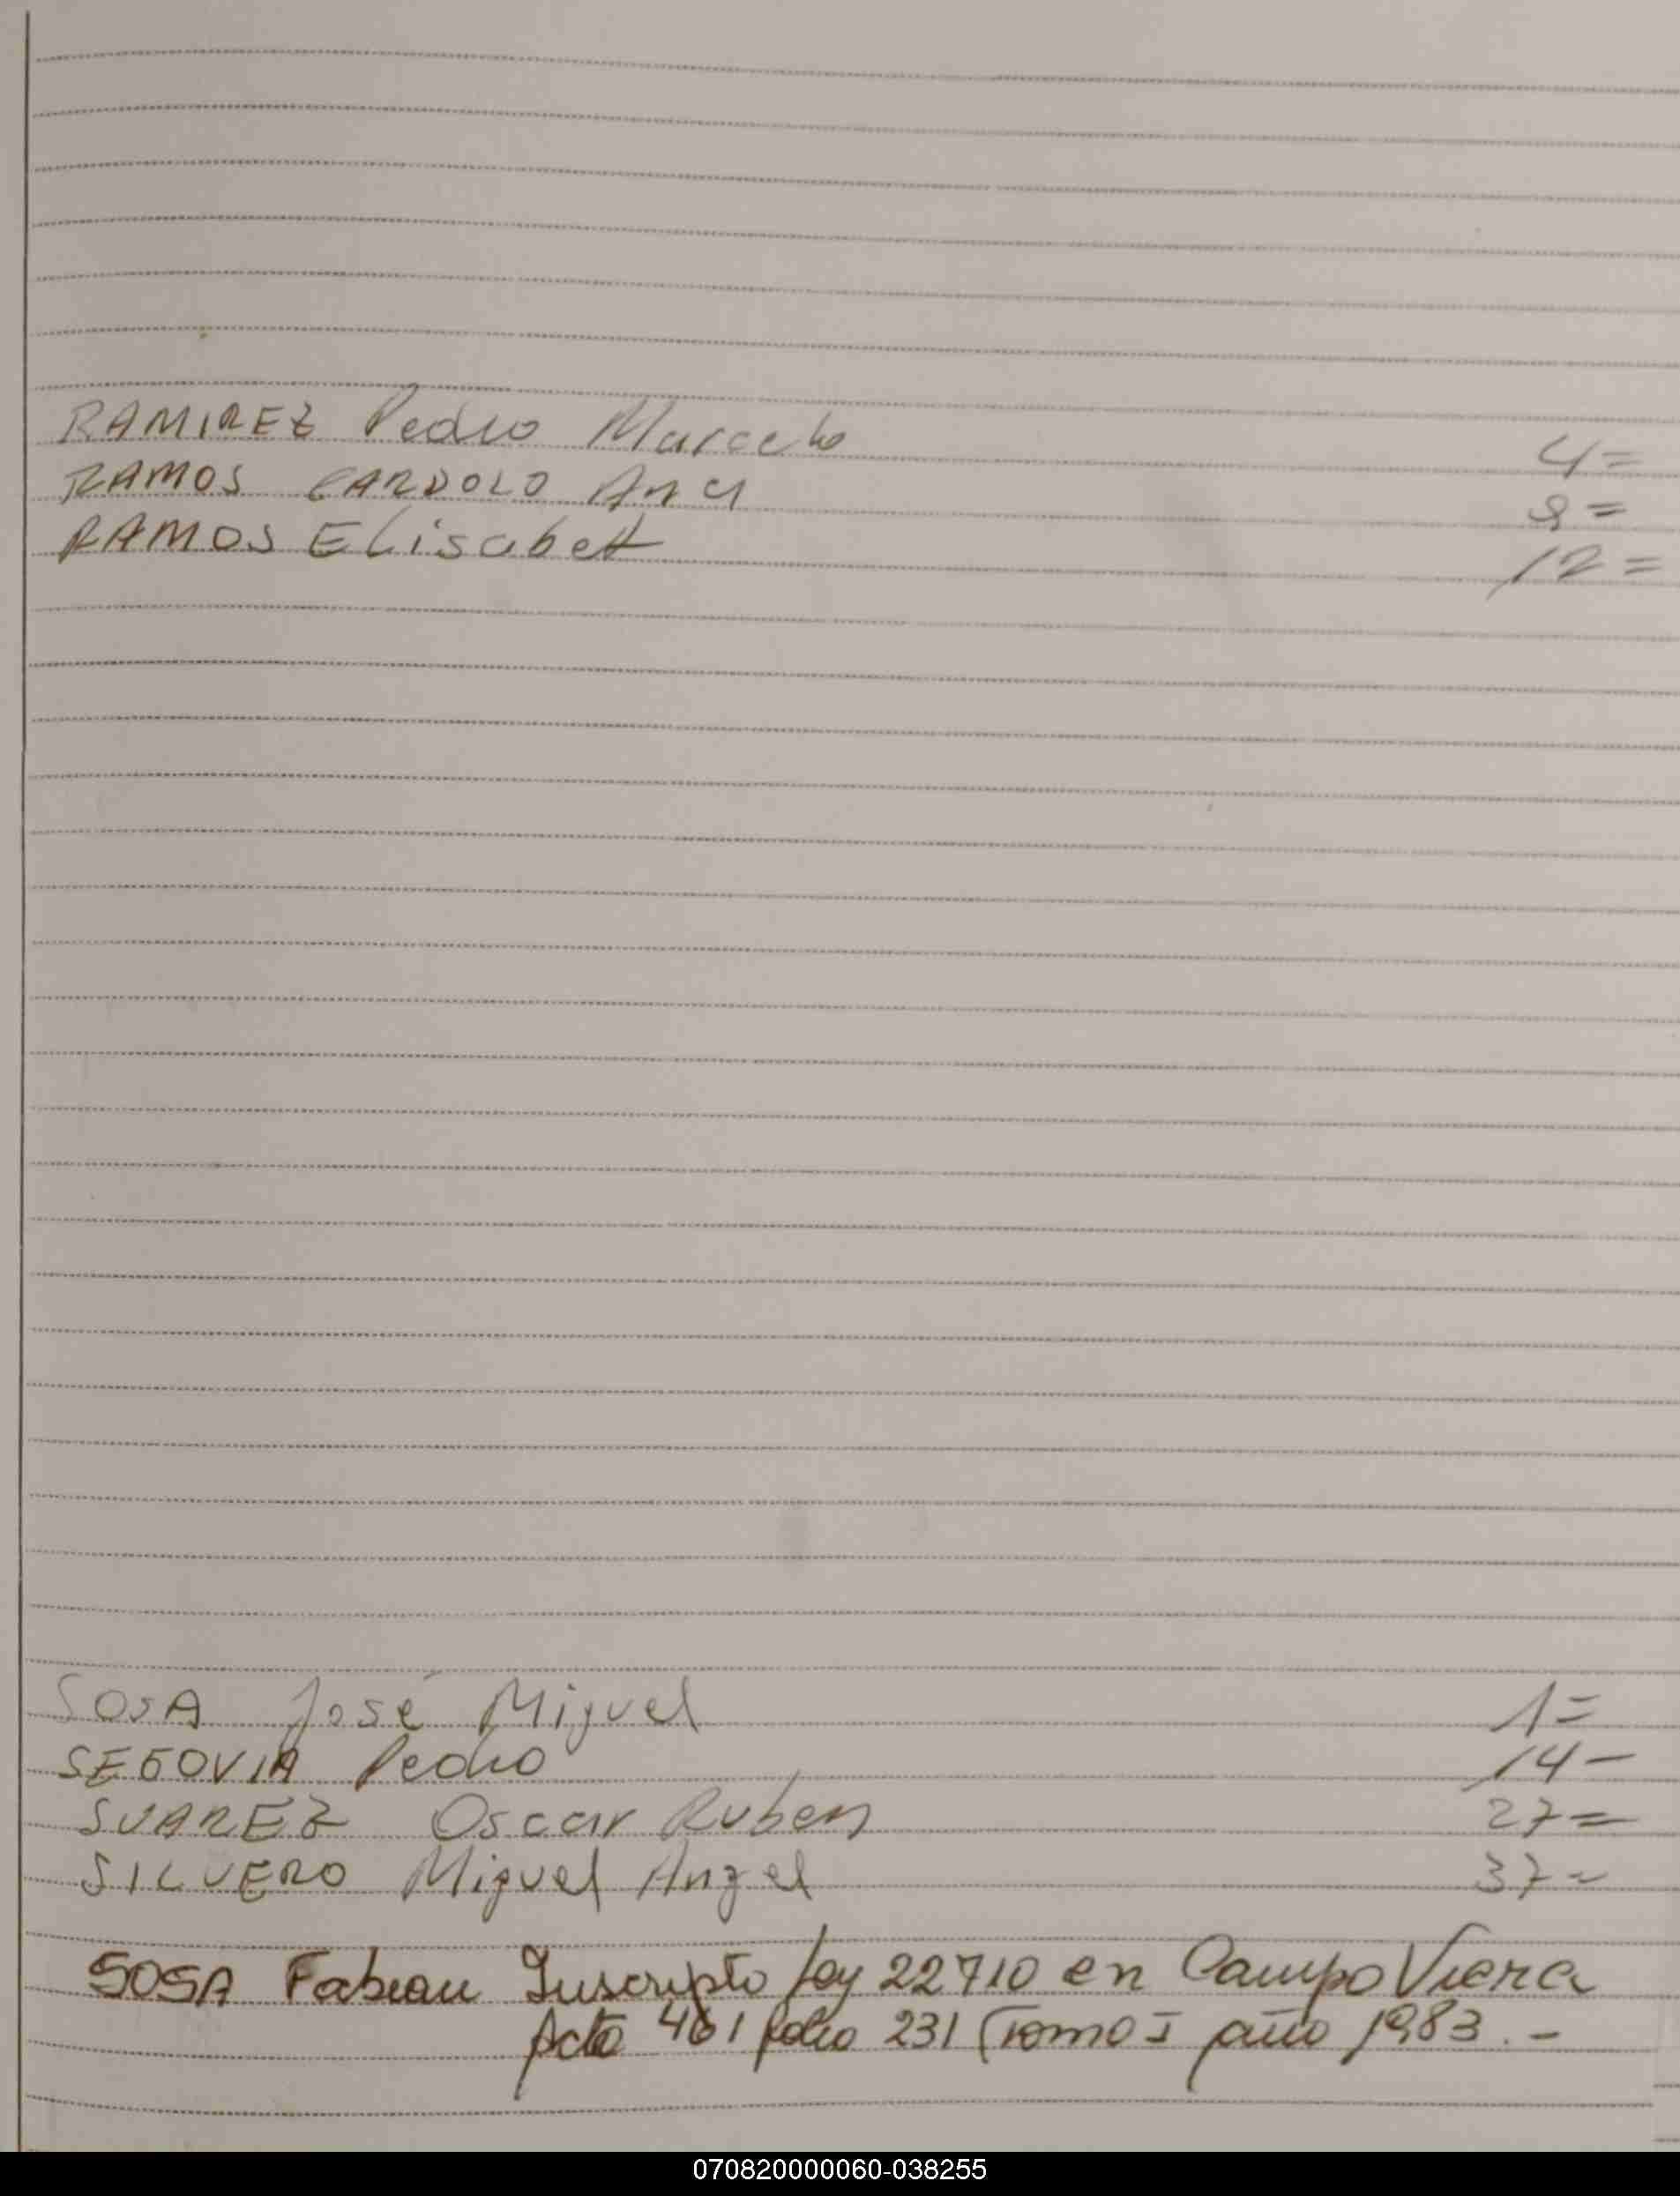 RAMIREZ Pedro Marcelo 4=
RAMOS CARDOLO Ana 8=
RAMOS Elisabet 12=
SOSA José Miguel 1=
SEGOVIA Pedro 14-
SUAREZ Oscar Ruben 27=
SILVERO Miguel Angel 37=
SOSA Fabian Inscripto ley 22710 en Campo Viera
Acta 461 folio 231 Tomo I año 1983.-
070820000060-038255